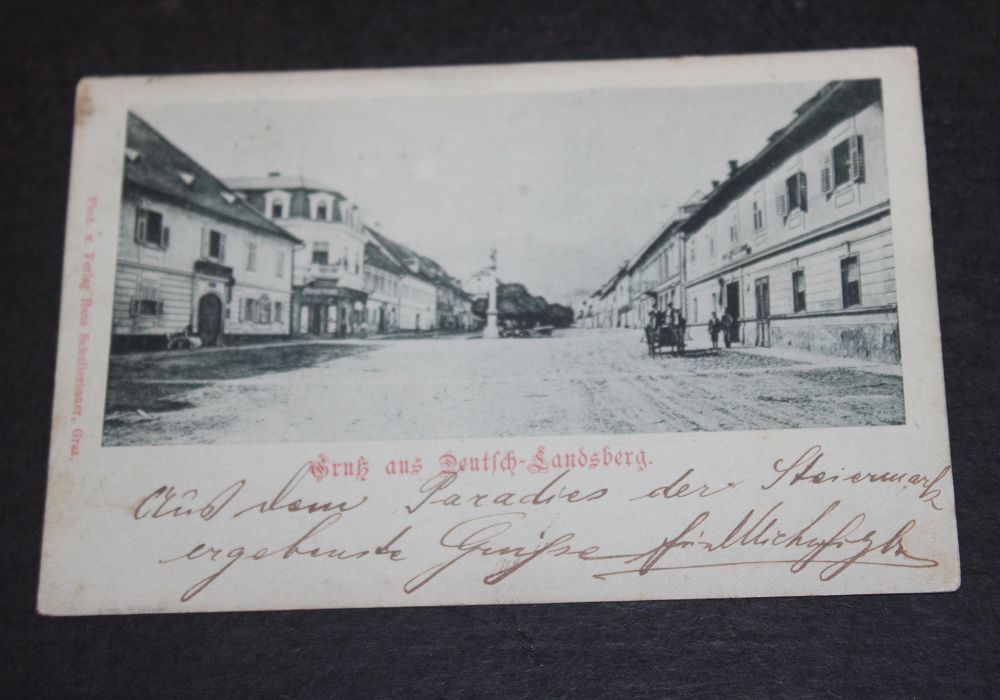 Phot. u. Verlag Hans Schullerbauer, Graz.
Gruß aus Deutsch-Landsberg.
Aus dem Paradies der Steiermark
ergebenste Grüsse